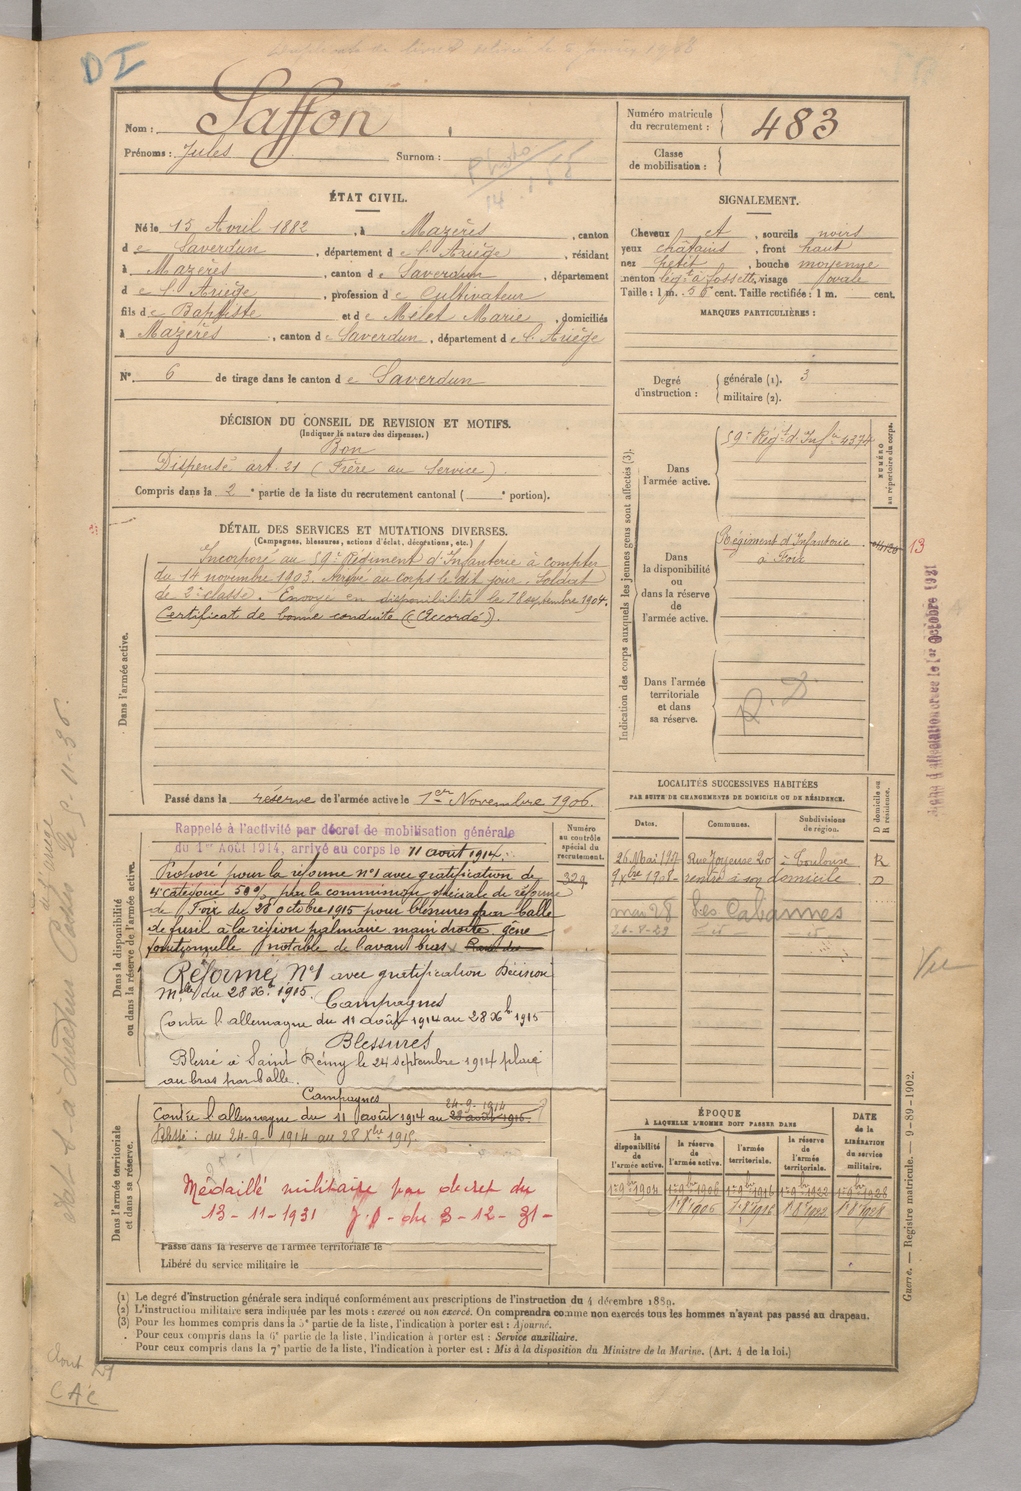 DI
Nom : Saffon
Prénoms : Jules Surnom :
Photo
Numéro matricule du recrutement : 483
Classe de mobilisation :
ÉTAT CIVIL.
Né le 15 Avril 1882, à Mazères, canton
de Saverdun, département de l'Ariège, résidant
à Mazères, canton de Saverdun, département
de l'Ariège, profession de Cultivateur
fils de Baptiste et de Melet Marie, domiciliés
à Mazères, canton de Saverdun, département de l'Ariège
N° 6 de tirage dans le canton de Saverdun
SIGNALEMENT.
Cheveux et, sourcils noirs
yeux châtains, front haut
nez petit, bouche moyenne
menton lég.t à fossette, visage ovale
Taille : 1 m. 56 cent. Taille rectifiée : 1 m. cent.
MARQUES PARTICULIÈRES :
Degré d'instruction : générale (1). 3
militaire (2).
DÉCISION DU CONSEIL DE REVISION ET MOTIFS.
(Indiquer la nature des dispenses.)
Bon
Dispensé art. 21 (Frère au Service)
Compris dans la 2e partie de la liste du recrutement cantonal ( e portion).
DÉTAIL DES SERVICES ET MUTATIONS DIVERSES.
(Campagnes, blessures, actions d'éclat, décorations, etc.)
Dans l'armée active.
Incorporé au 59e Régiment d'Infanterie à compter
du 14 novembre 1903. Arrivé au corps le dit jour. Soldat
de 2e classe. Envoyé en disponibilité le 18 septembre 1904.
Certificat de bonne conduite (Accordé).
Passé dans la réserve de l'armée active le 1er Novembre 1906.
Indication des corps auxquels les jeunes gens sont affectés (3).
NUMÉRO au répertoire du corps.
Dans l'armée active.
59e Régt d'Infie 4374
Dans la disponibilité ou dans la réserve de l'armée active.
Régiment d'Infanterie
à Foix
13
Dans l'armée territoriale et dans sa réserve.
R. D.
1er Octobre 1921
LOCALITÉS SUCCESSIVES HABITÉES
PAR SUITE DE CHANGEMENTS DE DOMICILE OU DE RÉSIDENCE.
Dates. Communes. Subdivisions de région. D domicile ou R résidence.
26 Mai 1907 Rue Joyeuse 20 à Toulouse R
9xbre 1908 rentré à son domicile D
mai 28 Les Cabannes
26-8-29 - id - - id -
Vu
Dans la disponibilité ou dans la réserve de l'armée active.
Numéro au contrôle spécial du recrutement.
329
Rappelé à l'activité par décret de mobilisation générale
du 1er Août 1914, arrivé au corps le 11 août 1914.
Proposé pour la réforme n°1 avec gratification de
4e catégorie 50% par la commission spéciale de réforme
de Foix du 28 octobre 1915 pour blessures par balle
de fusil à la région palmaire main droite gêne
fonctionnelle notable de l'avant bras
Réformé N°1 avec gratification Décision
Mlle du 28 Xbre 1915.
Campagnes
Contre l'allemagne du 11 août 1914 au 28 Xbre 1915
Blessures
Blessé à Saint Rémy le 24 septembre 1914 plaie
au bras par balle.
Dans l'armée territoriale et dans sa réserve.
Campagnes
24-9-1914
Contre l'allemagne du 11 août 1914 au 28 août 1915
Blessé : du 24-9-1914 au 28 Xbre 1915.
Médaillé militaire par décret du
13-11-1931 J.O. du 3-12-31-
Passé dans la réserve de l'armée territoriale le
Libéré du service militaire le
ÉPOQUE
À LAQUELLE L'HOMME DOIT PASSER DANS
la disponibilité de l'armée active. la réserve de l'armée active. l'armée territoriale. la réserve de l'armée territoriale.
DATE de la LIBÉRATION du service militaire.
(1) Le degré d'instruction générale sera indiqué conformément aux prescriptions de l'instruction du 4 décembre 1889.
(2) L'instruction militaire sera indiquée par les mots : exercé ou non exercé. On comprendra comme non exercés tous les hommes n'ayant pas passé au drapeau.
(3) Pour les hommes compris dans la 5e partie de la liste, l'indication à porter est : Ajourné.
Pour ceux compris dans la 6e partie de la liste, l'indication à porter est : Service auxiliaire.
Pour ceux compris dans la 7e partie de la liste, l'indication à porter est : Mis à la disposition du Ministre de la Marine. (Art. 4 de la loi.)
Guerre. — Registre matricule. — 9-89-1902.
CAC